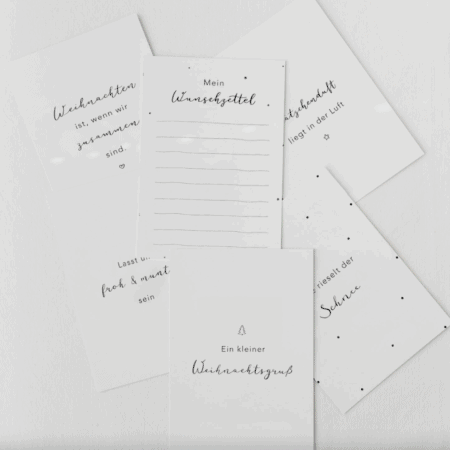 Weihnachten
ist, wenn wir
zusammen
sind.
Mein
Wunschzettel
liegt in der Luft
Lasst
froh &
sein
rieselt der
Schnee
Ein kleiner
Weihnachtsgruß